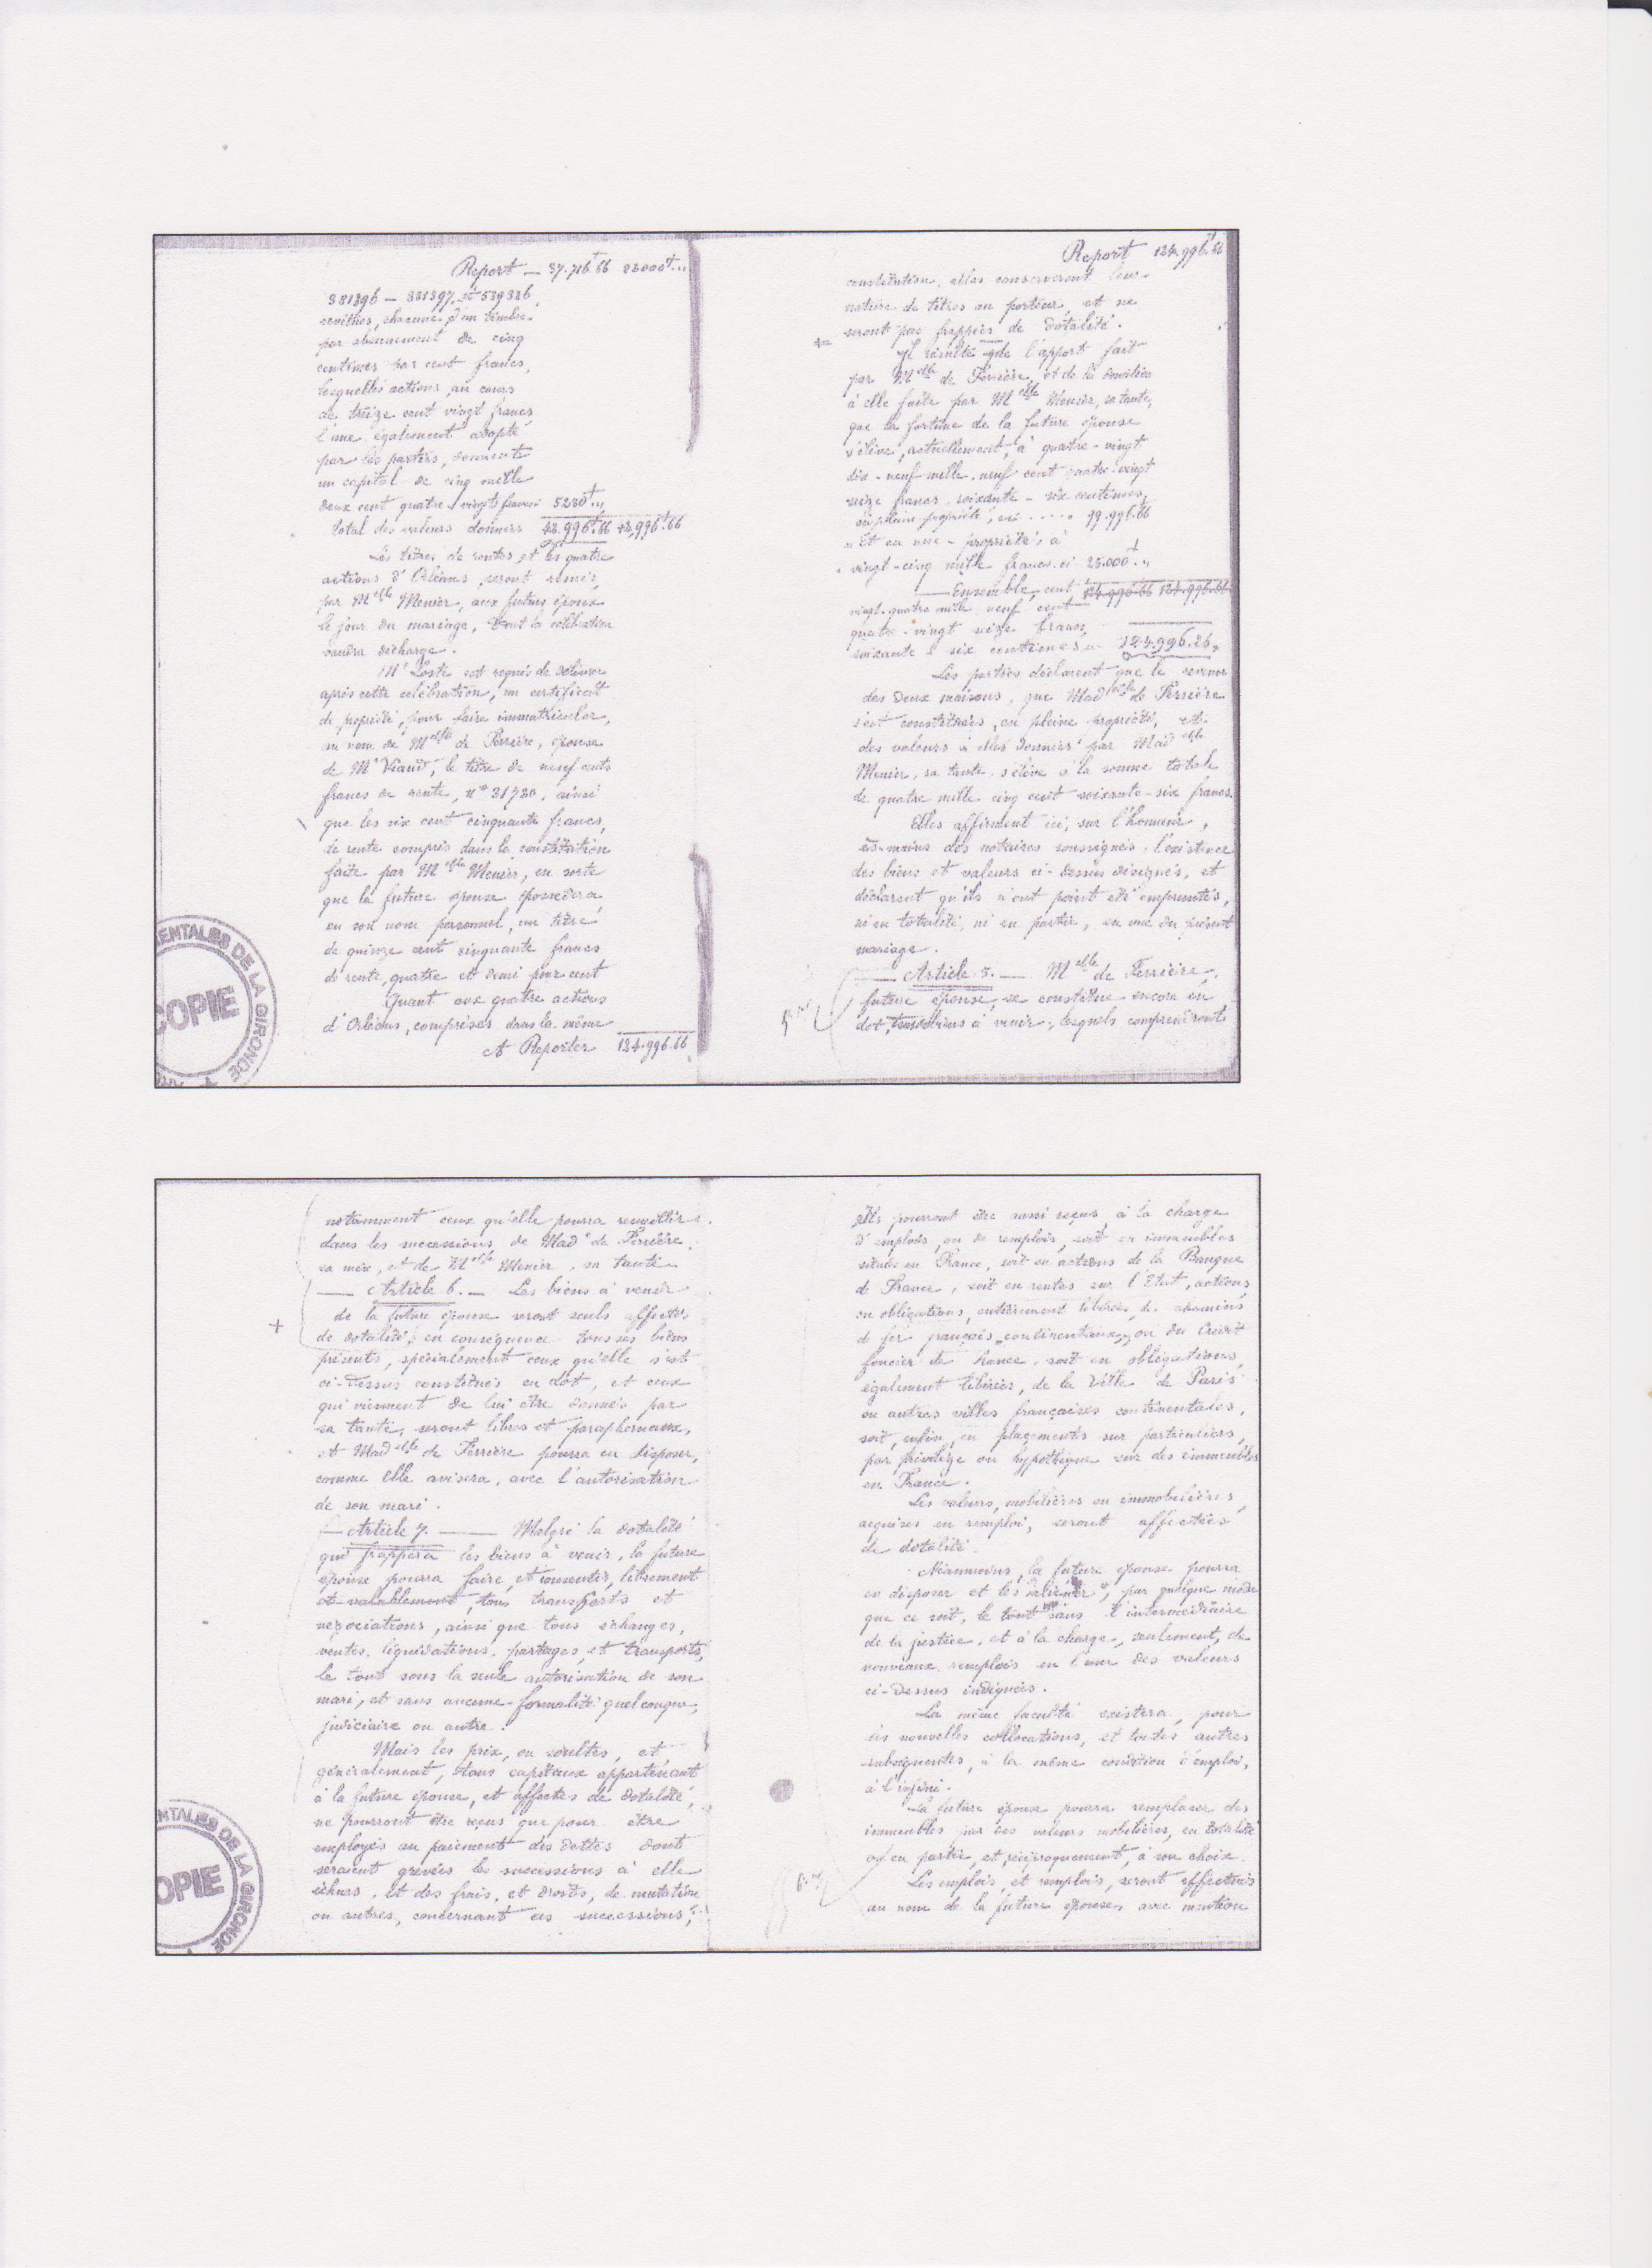 Report — 37.716f.66 82000f.,,
381396 — 381397, et 539326,
revêtues, chacune, d'un timbre
par abonnement de cinq
centimes par cent francs,
lesquelles actions, au cours
de treize cent vingt francs
l'une également adopté
par les parties, donnent
un capital de cinq mille
deux cent quatre-vingt francs 5280f.,,
Total des valeurs données 42.996f.66 42.996f.66
Les titres de rentes, et les quatre
actions d'Orléans, seront remis,
par Melle Menier, aux futurs époux
le jour du mariage, dont la célébration
vaudra décharge.
Me Loste est requis de délivrer
après cette célébration, un certificat
de propriété, pour faire immatriculer,
au nom de Melle de Ferrière, épouse
de Mr Viaud, le titre de neuf cents
francs de rente, no 31780, ainsi
que les six cent cinquante francs,
de rente compris dans la constitution
faite par Melle Menier, en sorte
que la future épouse possèdera,
en son nom personnel, un titre
de quinze cent cinquante francs
de rente, quatre et demi pour cent
Quant aux quatre actions
d'Orléans, comprises dans la même
A Reporter 124.996.66
Report 124.996f.66
constitution, elles conserveront leur
nature de titres au porteur, et ne
seront pas frappées de dotalité.
Il résulte que l'apport fait
par Melle de Ferrière, et de la donation
à elle faite par Melle Menier, sa tante,
que la fortune de la future épouse
s'élève, actuellement, à quatre-vingt
dix-neuf mille, neuf cent quatre-vingt
seize francs, soixante-six centimes,
en pleine propriété, ci .... 99.996.66
Et en nue-propriété à
vingt-cinq mille francs ci 25.000f.,,
Ensemble, cent 124.996.66 124.996.66
vingt-quatre mille neuf cent
quatre-vingt seize francs,
soixante six centimes 124.996.26,
Les parties déclarent que le revenu
des deux maisons, que Madelle de Ferrière
s'est constituées, en pleine propriété, et
des valeurs à elles données par Madelle
Menier, sa tante, s'élève à la somme totale
de quatre mille cinq cent soixante-six francs.
Elles affirment ici, sur l'honneur,
ès-mains des notaires soussignés, l'existence
des biens et valeurs ci-dessus désignés, et
déclarent qu'ils n'ont point été empruntés,
ni en totalité, ni en partie, en vue du présent
mariage.
— Article 5. — Melle de Ferrière,
future épouse, se constitue encore en
dot, tous biens à venir, lesquels comprendront
notamment ceux qu'elle pourra recueillir
dans les successions de Made de Ferrière,
sa mère, et de Melle Menier, sa tante
— Article 6. — Les biens à venir
de la future épouse seront seuls affectés
de dotalité, en conséquence tous ses biens
présents, spécialement ceux qu'elle s'est
ci-dessus constitués en dot, et ceux
qui viennent de lui être donnés par
sa tante, seront libres et paraphernaux,
et Madelle de Ferrière pourra en disposer,
comme elle avisera, avec l'autorisation
de son mari.
— Article 7. — Malgré la dotalité
qui frappera les biens à venir, la future
épouse pourra faire, et consentir, librement
et valablement, tous transferts et
négociations, ainsi que tous échanges,
ventes, liquidations, partages, et transports,
le tout sous la seule autorisation de son
mari, et sans aucune formalité quelconque,
judiciaire ou autre.
Mais les prix, ou soultes, et
généralement, tous capitaux appartenant
à la future épouse, et affectés de dotalité,
ne pourront être reçus que pour être
employés au paiement des dettes dont
seraient grevées les successions à elle
échues, et des frais, et droits, de mutation
ou autres, concernant ces successions,
Ils pourront être aussi reçus, à la charge
d'emplois, ou de remplois, soit en immeubles
situés en France, soit en actions de la Banque
de France, soit en rentes sur l'Etat, actions,
ou obligations, entièrement libérées, de chemins
de fer français continentaux, ou du Crédit
foncier de France, soit en obligations,
également libérées, de la Ville de Paris
ou autres villes françaises continentales,
soit, enfin, en placements sur particuliers,
par privilège ou hypothèque sur des immeubles
en France.
Les valeurs, mobilières ou immobilières,
acquises en remploi, seront affectées
de dotalité.
Néanmoins, la future épouse pourra
en disposer et les aliéner, par quelque mode
que ce soit, le tout sans l'intermédiaire
de la justice, et à la charge, seulement, de
nouveaux remplois en l'une des valeurs
ci-dessus indiquées.
La même faculté existera, pour
les nouvelles collocations, et toutes autres
subséquentes, à la même condition d'emploi,
à l'infini.
La future épouse pourra remplacer des
immeubles par des valeurs mobilières, en totalité
ou en partie, et, réciproquement, à son choix.
Les emplois, et remplois, seront effectués
au nom de la future épouse, avec mention
ENTALES DE LA GIRONDE
COPIE
ENTALES DE LA GIRONDE
OPIE